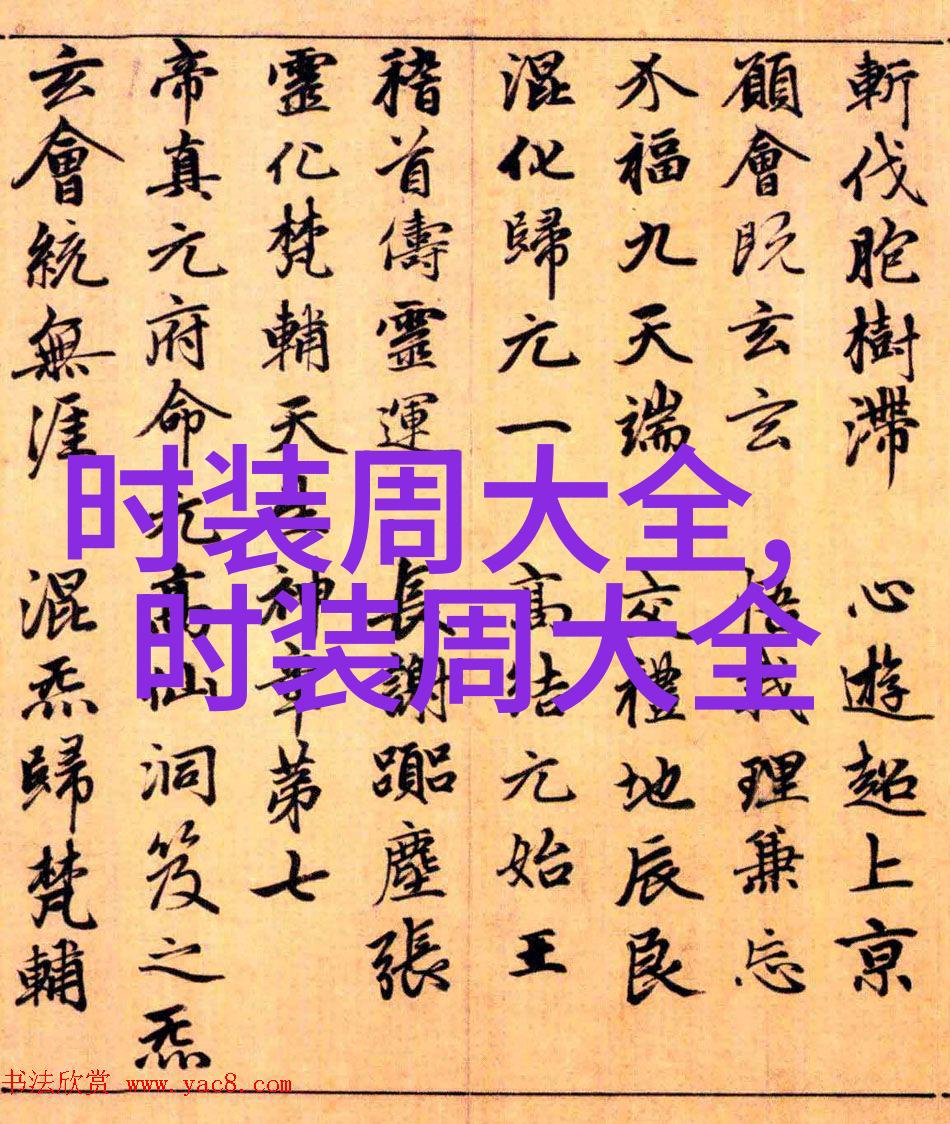 斬伐胞樹滯　心遊超上京
願會既玄玄　悟我理兼忘
水福九天端　交禮地辰良
混化歸元一　高結元始王
稽首儔靈運　長謝躡塵張
靈化梵輔天　神章第七
帝真元府命元高仙洞笈之炁
玄會統無涯　混炁歸梵輔
时装周大全,
时装周大全
书法欣赏 www.yac8.com